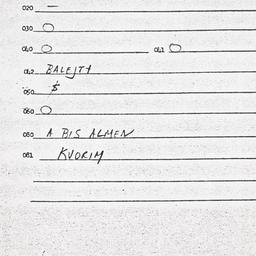 020 —
030 O
040 O 041 O
042 BALEJTY
050 $
060 O
080 A BIS ALMEN
081 KVORIM